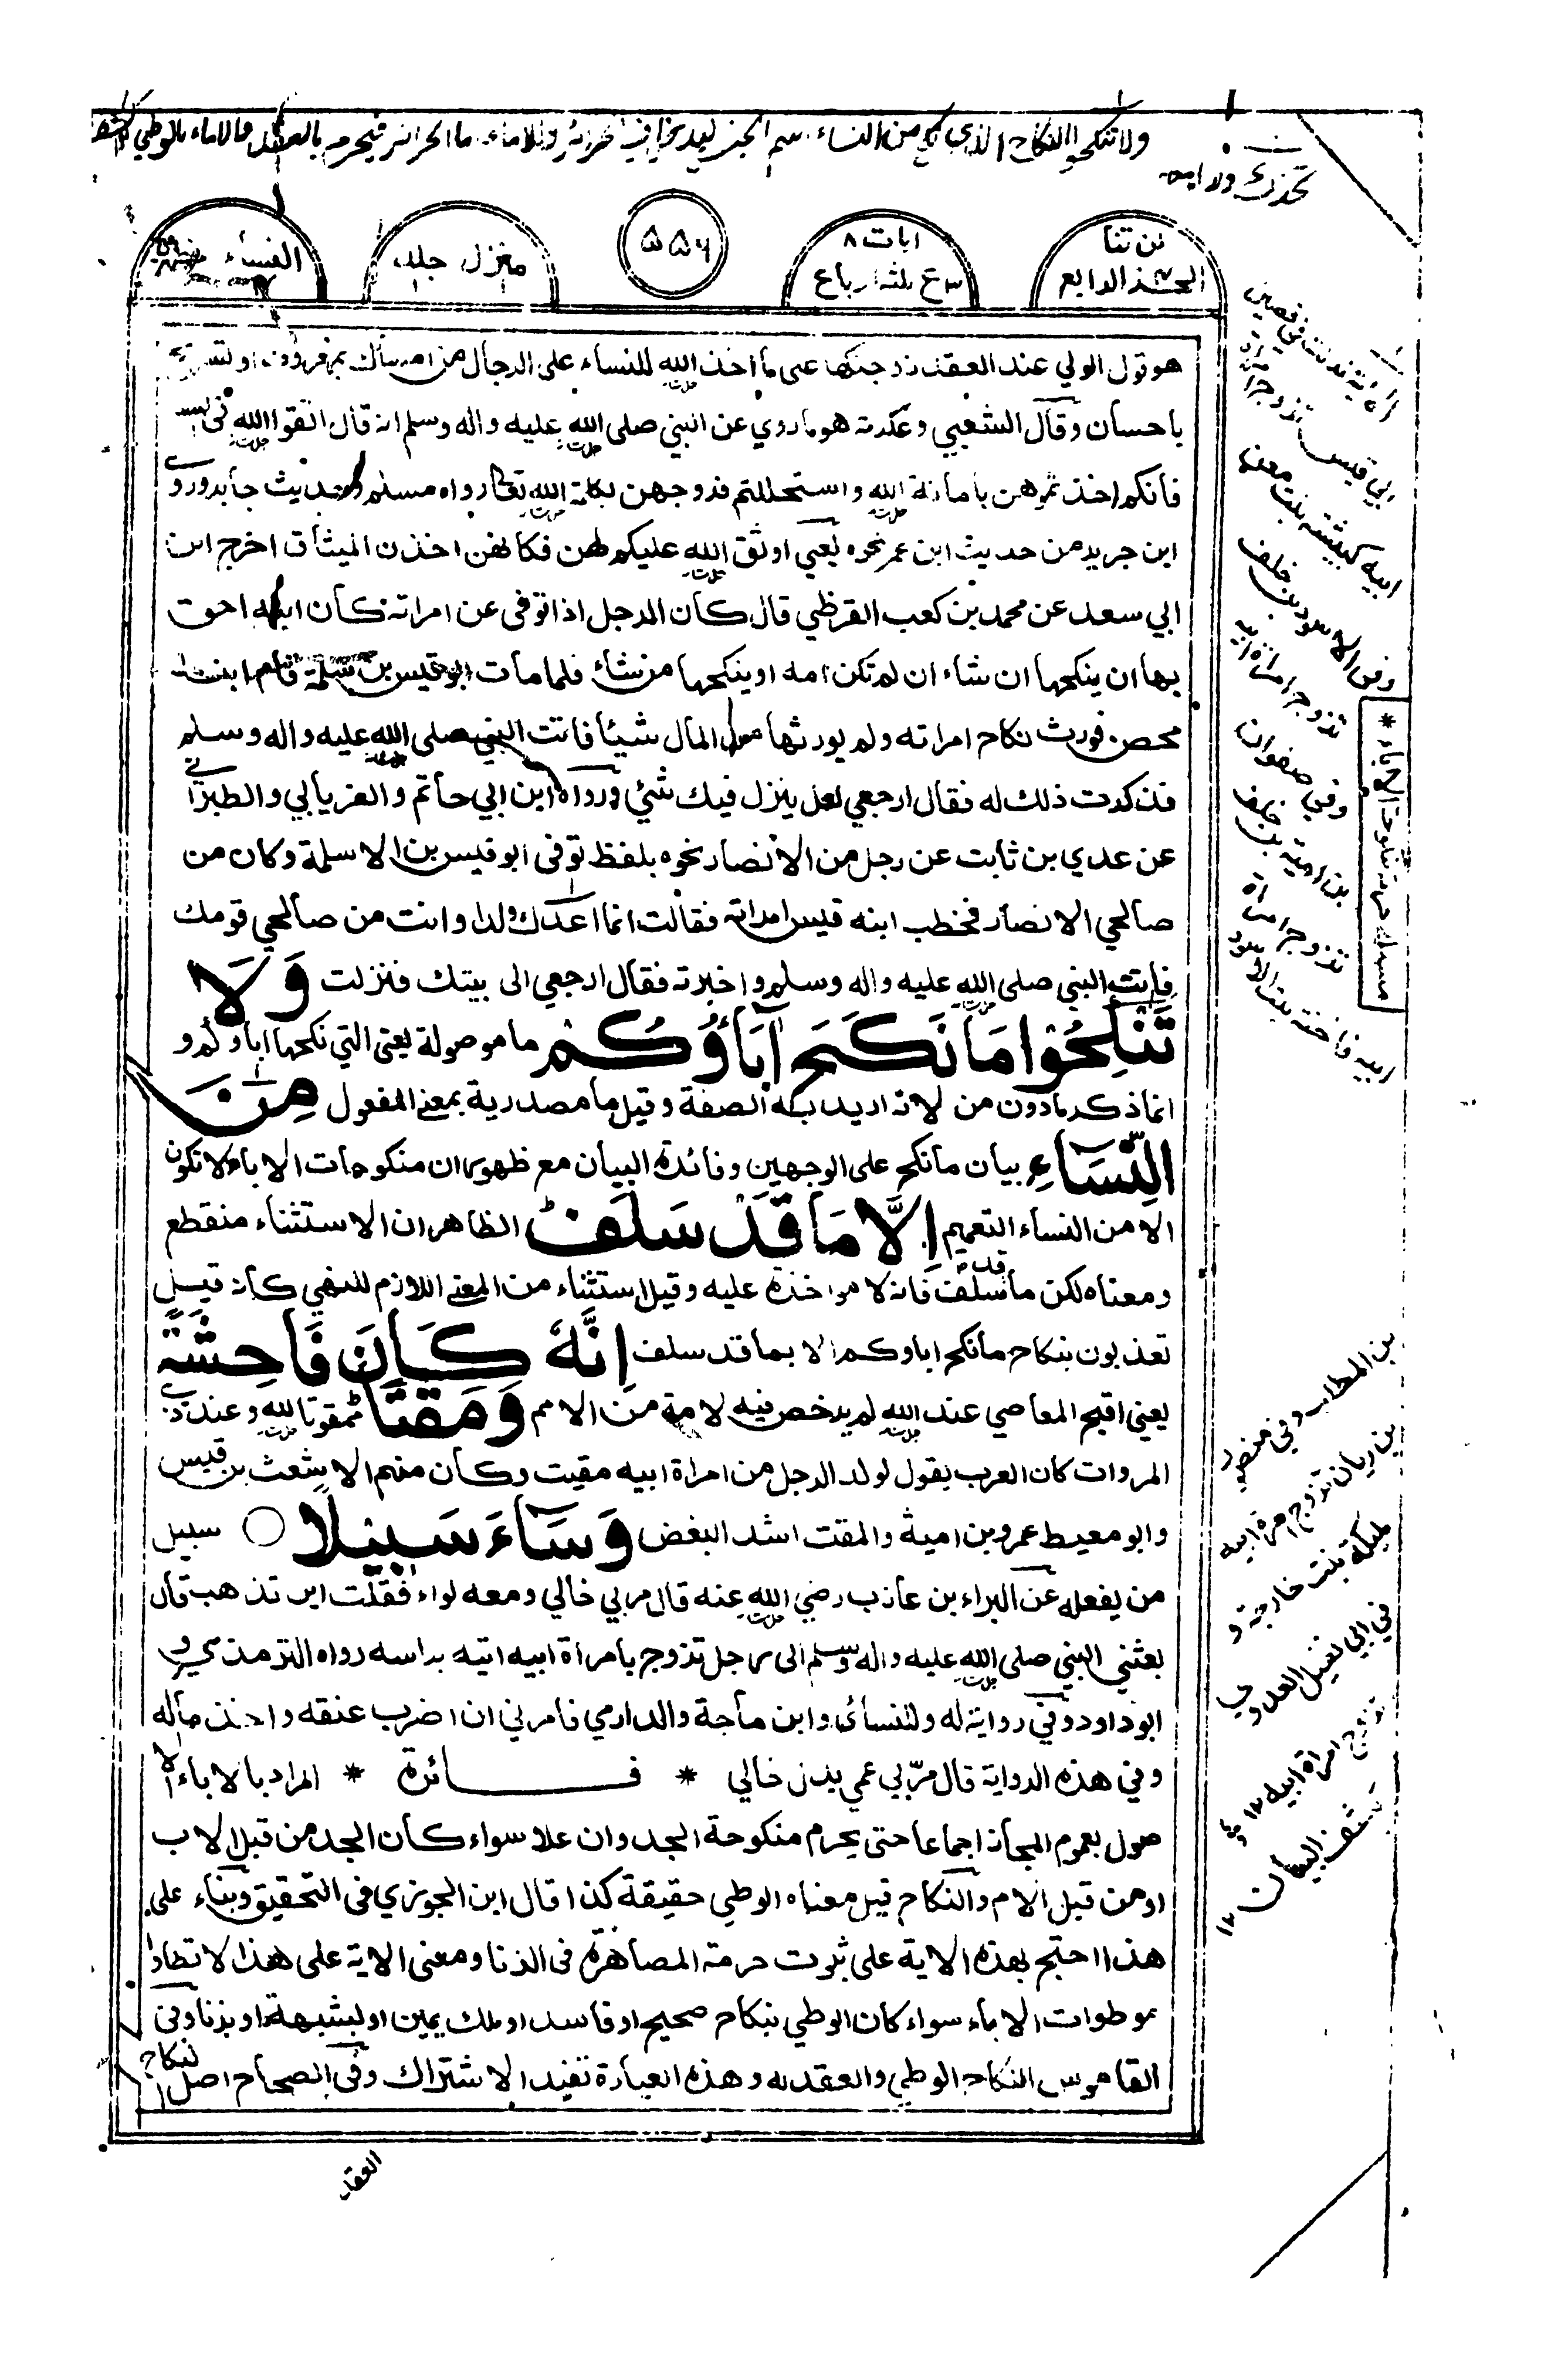 ولا تنكحوا النكاح الذي نكح من النساء
لن تنا
الجزء الرابع
ايات ٨
ع ثلثه ارباع
٥٥٦
منزل جلد
النساء
هو قول الولي عند العقد زوجتكها على ما اخذ الله للنساء على الرجال من امساك بمعروف او تسريح
باحسان وقال الشعبي وعكرمة هو ما روي عن النبي صلى الله عليه واله وسلم انه قال اتقوا الله في النساء
فانكم اخذتموهن بامانة الله واستحللتم فروجهن بكلمة الله تعالى رواه مسلم من حديث جابر وروى
ابن جرير من حديث ابن عمر نحوه يعني اوثق الله عليكم لهن فكانهن اخذن الميثاق اخرج ابن
ابي سعد عن محمد بن كعب القرظي قال كان الرجل اذا توفى عن امراته كان ابنه احق
بها ان ينكحها ان شاء ان لم تكن امه او ينكحها من شاء فلما مات ابو قيس بن سلمة قام ابنه
محصن فورث نكاح امراته ولم يورثها من المال شيئا فاتت النبي صلى الله عليه واله وسلم
فذكرت ذلك له فقال ارجعي لعل ينزل فيك شئ ورواه ابن ابي حاتم والفريابي والطبراني
عن عدي بن ثابت عن رجل من الانصار نحوه بلفظ توفى ابو قيس بن الاسلمة وكان من
صالحي الانصار فخطب ابنه قيس امراته فقالت انما اعدك ولدا وانت من صالحي قومك
فاتت النبي صلى الله عليه واله وسلم واخبرته فقال ارجعي الى بيتك فنزلت وَلَا
تَنْكِحُوا مَا نَكَحَ آبَاؤُكُمْ ما موصولة يعنى التي نكحها اباؤكم و
انما ذكر ما دون من لانه اريد به الصفة وقيل ما مصدرية بمعنى المفعول مِنَ
النِّسَاءِ بيان ما نكح على الوجهين وفائدة البيان مع ظهور ان منكوحات الاباء لا تكون
الا من النساء التعميم اِلَّا مَا قَدْ سَلَفَ الظاهر ان الاستثناء منقطع
ومعناه لكن ما قد سلف فانه لا مواخذة عليه وقيل استثناء من المعنى اللازم للنهي كانه قيل
تعذبون بنكاح ما نكح اباؤكم الا بما قد سلف اِنَّهٗ كَانَ فَاحِشَةً
يعني اقبح المعاصي عند الله لم يرخص فيه لامة من الامم وَمَقْتًا ممقوتا لله وعند ذوي
المروات كان العرب يقول لولد الرجل من امراة ابيه مقيت وكان منهم الاشعث بن قيس
وابو معيط عمرو بن امية والمقت اشد البغض وَسَاءَ سَبِيْلًا ○ سبيل
من يفعله عن البراء بن عازب رضي الله عنه قال مر بي خالي ومعه لواء فقلت اين تذهب قال
بعثني النبي صلى الله عليه واله وسلم الى رجل تزوج بامراة ابيه اتيه براسه رواه الترمذي و
ابو داود وفي رواية له وللنسائى وابن ماجة والدارمي فامرني ان اضرب عنقه واخذ ماله
وفي هذه الرواية قال مرّ بي عمي بدل خالي * فـــائدة * المراد بالاباء الا
صول بعموم المجاز اجماعا حتى يحرم منكوحة الجد وان علا سواء كان الجد من قبل الاب
او من قبل الام والنكاح قيل معناه الوطي حقيقة كذا قال ابن الجوزي في التحقيق وبناء على
هذا احتج بهذه الاية على ثبوت حرمة المصاهرة في الزنا ومعنى الاية على هذا لا تطاوا
موطوات الاباء سواء كان الوطي بنكاح صحيح او فاسد او ملك يمين او بشبهة او بزنا وفي
القاموس النكاح الوطي والعقد له وهذه العبارة تفيد الاشتراك وفي الصحاح اصل النكاح
العقد
ابي قيس تزوج امراة
ابيه كبيشة بنت معن
وفي الاسود بن خلف
تزوج امراة ابيه
وفي صفوان
بن امية بن خلف
تزوج امراة
ابيه فاختة بنت الاسود
بن المطلب وفي منصور
بن ريان تزوج امراة ابيه
مليكة بنت خارجة و
في ابي نفيل العدوي
تزوج امراة ابيه ١٢